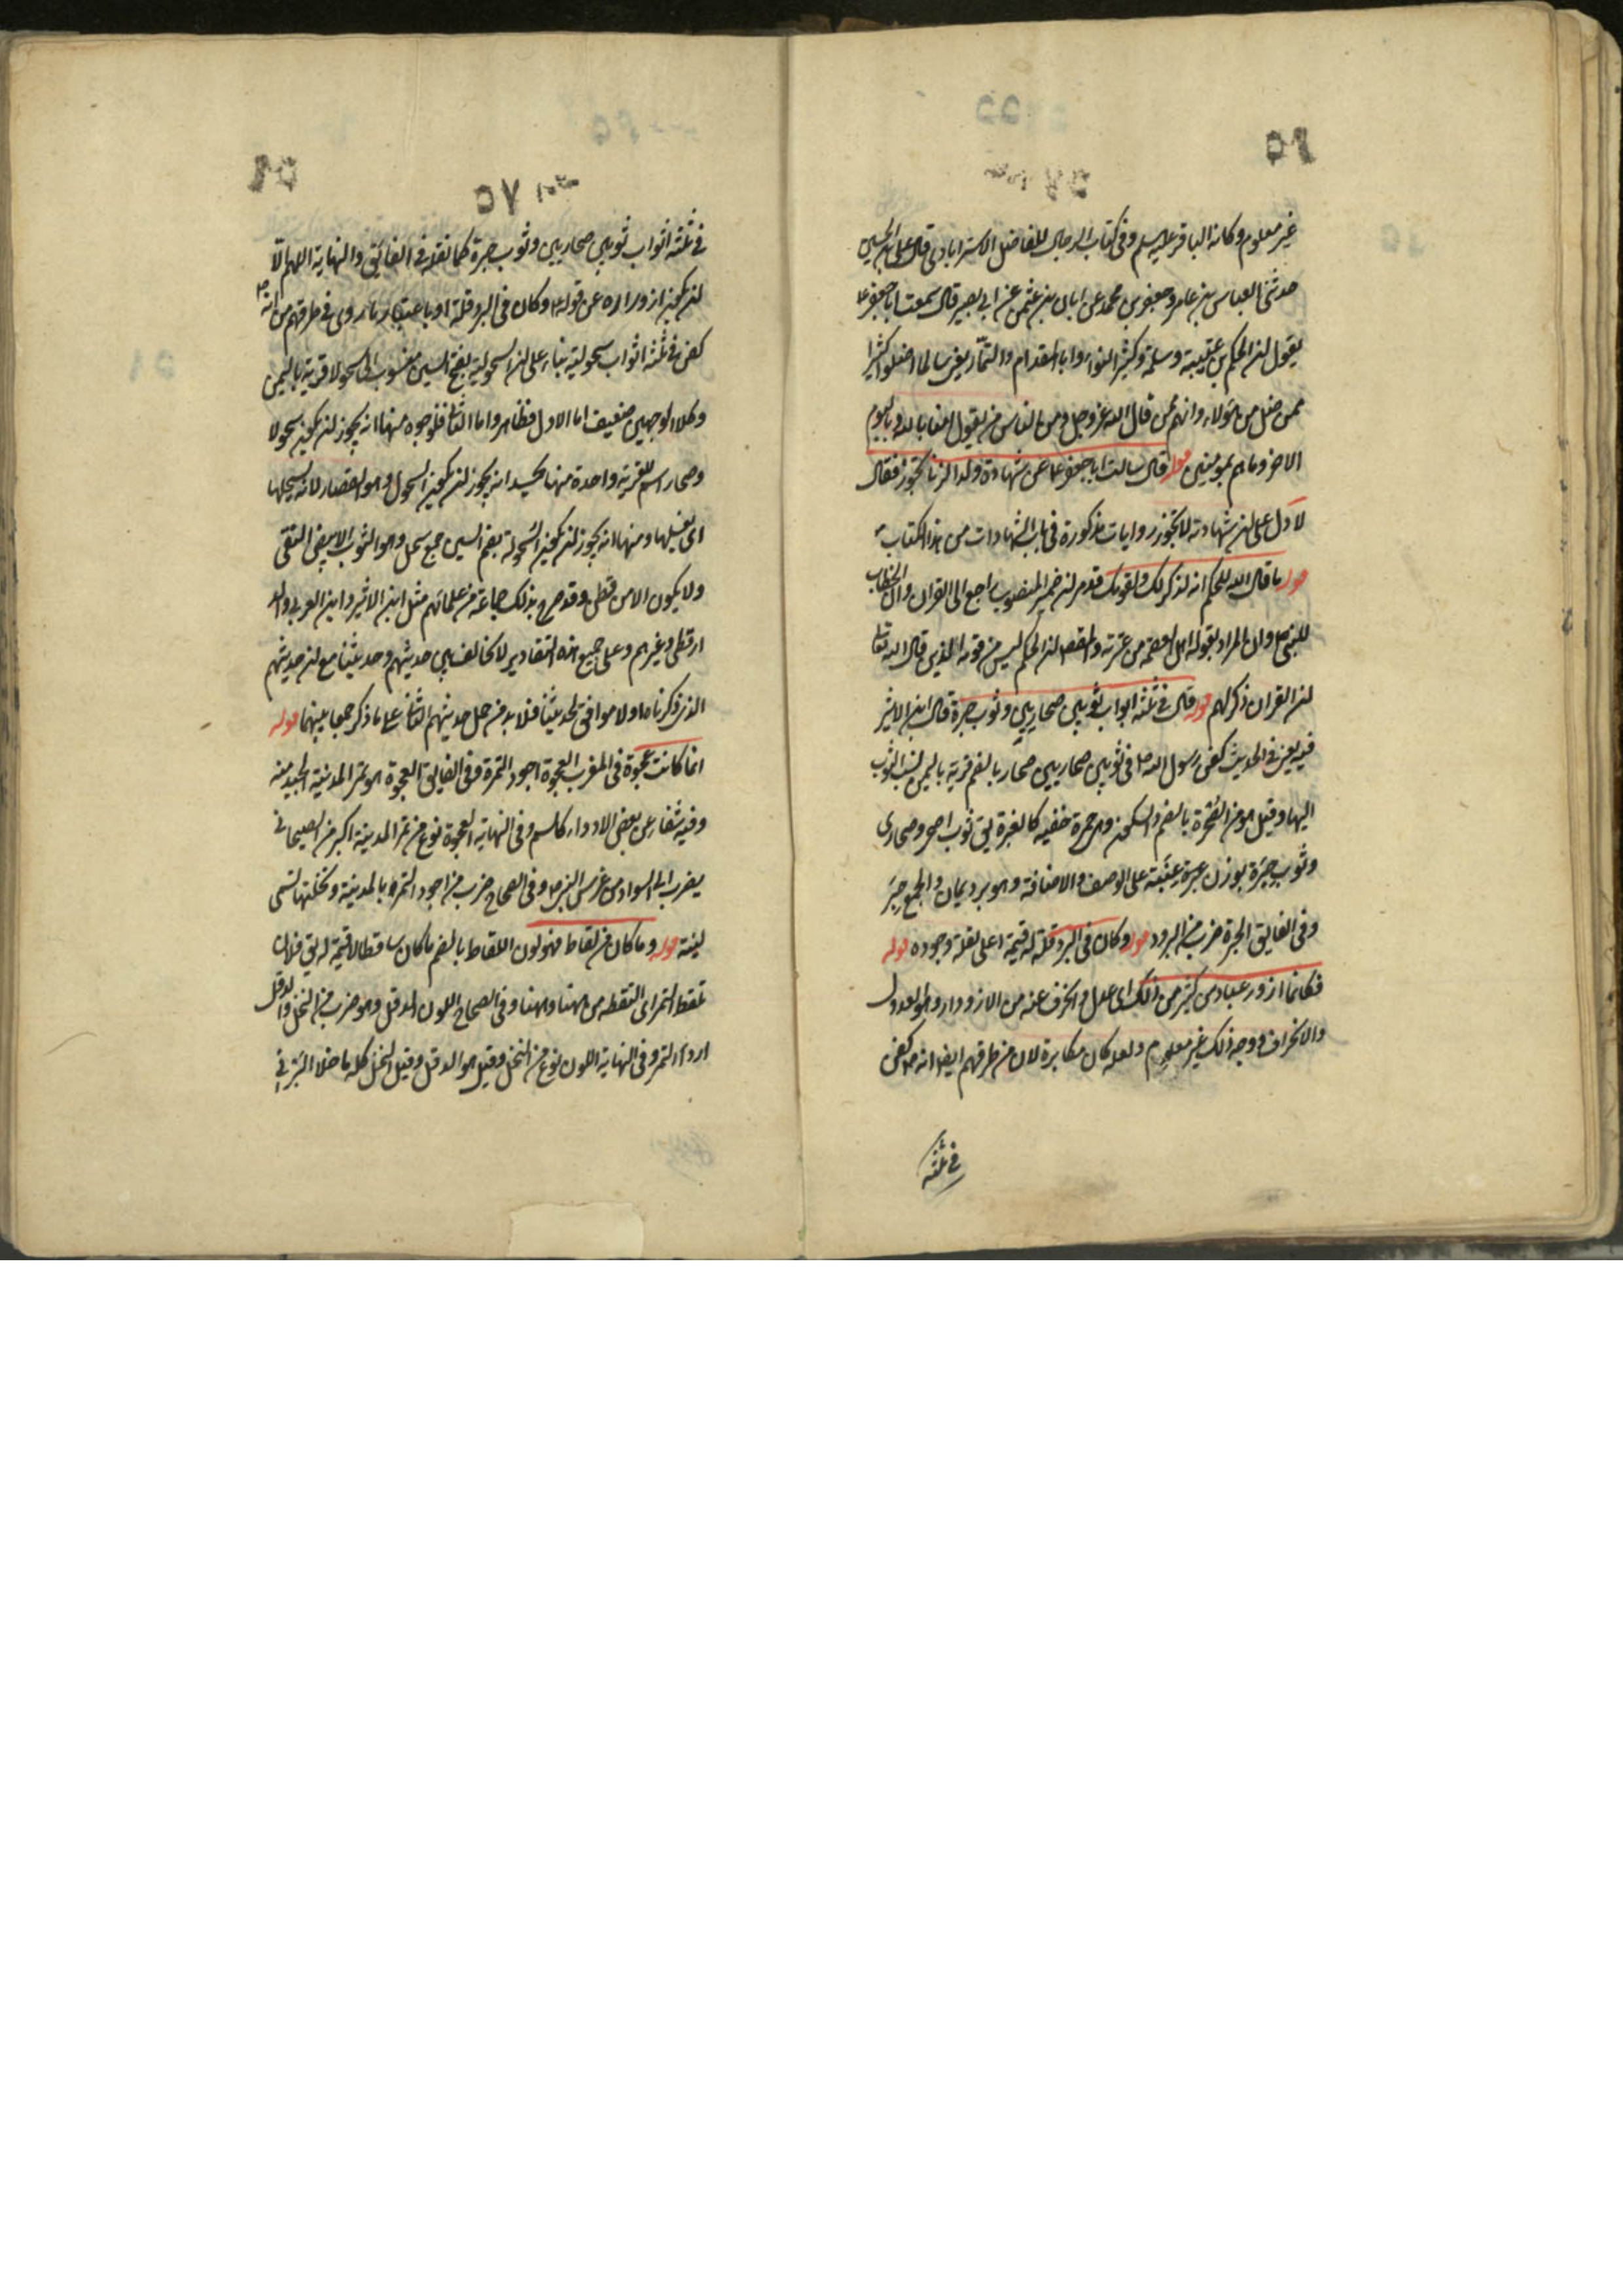 غير معلوم وكانه الباقر عليه السلم وفى كتاب الرجال للفاضل الاسترابادى قال على بن الحسين
حدثنى العباس بن عامر وجعفر بن محمد عن ابان بن عثمن عن ابى بصير قال سمعت ابا جعفر ع
يقول ان الحكم بن عتيبة وسلمة وكثير النوا وابا المقدام والتمار يعنى سالما اضلوا كثيرا
ممن ضل من هؤلاء وانهم ممن قال الله عز وجل ومن الناس من يقول امنا بالله وباليوم
الاخر وما هم بمؤمنين قوله قال سالت ابا جعفر ع عن شهادة ولد الزنا تجوز فقال
لا دل على ان شهادته لا تجوز روايات مذكورة فى باب الشهادات من هذا الكتاب
قوله ما قال الله للحكم انه لذكر لك ولقومك قد مر ان ضمير المنصوب راجع الى القران وان الخطاب
للنبى ص وان المراد بقوله اهل العصمة من عترته والمقصود ان الحكم ليس من قومه الذين قال الله تعالى
ان القران ذكر لهم قوله قال فى ثلثة اثواب ثوبين صحاريين وثوب حبرة قال ابن الاثير
فيه يعنى فى الحديث كفن رسول الله ص فى ثوبين صحاريين صحار بالضم قرية باليمن نسب الثوب
اليها وقيل هو من الصحرة بالضم والسكون وهى حمرة خفية كالغبرة يق ثوب اصحر وصحارى
وثوب حبرة بوزن عبرة عنبة على الوصف والاضافة وهو برد يمان والجمع حبر
وفى الفايق الحبرة ضرب من البرود قوله وكان فى البرد قلة له قيمة اعلى لقلة وجوده قوله
فكانما ازور عباد من كثير من ذلك اى عدل وانحرف عنه من الازورار وهو العدول
والانحراف ووجه ذلك غير معلوم ولعله كان مكابرة لان من طرقهم ايضا انه ص كفن
فى ثلثة
فى ثلثة اثواب ثوبين صحاريين وثوب حبرة كما نقله فى الفائق والنهاية اللهم الا
ان يكون ازوراره عن قوله ع وكان فى البرد قلة او باعتبار ما روى فى طرقهم من انه ص
كفن فى ثلثة اثواب سحولية بناء على ان السحولية بفتح السين منسوب الى سحولا قرية باليمن
وكلا الوجهين ضعيف اما الاول فظاهر واما الثانى فلوجوه منها انه يجوز ان يكون سحولا
وصحار اسم لقرية واحدة منها انه يجوز ان يكون السحول وهو القصار لانه يسحلها
اى يغسلها ومنها انه يجوز ان يكون السحولة بضم السين جمع سحل وهو الثوب الابيض النقى
ولا يكون الا من قطن وقد صرح بذلك جماعة من علمائهم مثل ابن الاثير وابن العربى والد
ارقطنى وغيرهم وعلى جميع هذه التقادير لا تخالف بين حديثهم وحديثنا مع ان حديثهم
الذى ذكرناه اولا موافق لحديثنا فلا بد من حمل حديثهم الثانى على ما ذكر جمعا بينهما قوله
انما كانت عجوة فى المغرب العجوة اجود التمرة وفى الفايق العجوة هو تمر المدينة الجيد منه
وفيه شفاء عن بعض الادواء كالسم وفى النهاية العجوة نوع من تمر المدينة اكبر من الصيحانى
يضرب الى السواد من غرس النبى ص وفى الصحاح ضرب من اجود التمر بالمدينة ونخلتها تسمى
لينة قوله وما كان من لقاط فهو لون اللقاط بالضم ما كان ساقطا لا قيمة له يق فلان
تلقط التمر اى التقطه من ههنا وههنا وفى الصحاح اللون الدقل وهو ضرب من النخل والدقل
اردء التمر وفى النهاية اللون نوع من النخل وقيل هو الدقل وقيل النخل كله ما خلا البرنى